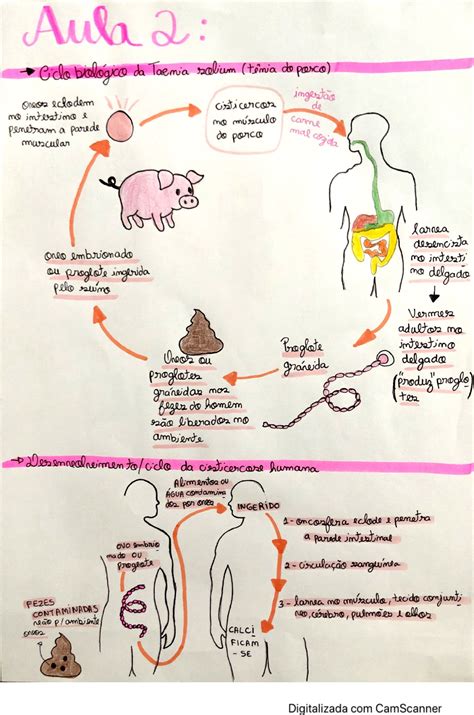 Aula 2:
→ Ciclo biológico da Taenia solium (tênia do porco)
Ovos eclodem
no intestino e
penetram a parede
muscular
cisticercos
no músculo
do porco
ingestão
de
carne
mal cozida
larvea
desencista
no intesti
no delgado
Vermes
adultos no
intestino
delgado
("produz" proglo
tes)
Proglote
grávida
Ovos ou
proglotes
grávidas nas
fezes do homem
são liberados no
ambiente
ovo embrionado
ou proglote ingerida
pelo suíno
→ Desenvolvimento/ciclo da cisticercose humana
Alimentos ou
ÁGUA contamina
dos por ovos
INGERIDO
1 - oncosfera eclode e penetra
a parede intestinal
2 - circulação sanguínea
3 - larvea no músculo, tecido conjunti
vo, cérebro, pulmões e olhos
OVO EMBRIO
NADO OU
PROGLOTE
FEZES
CONTAMINADAS
vão p/ ambiente
ovos
CALCI
FICAM-
-SE
Digitalizada com CamScanner